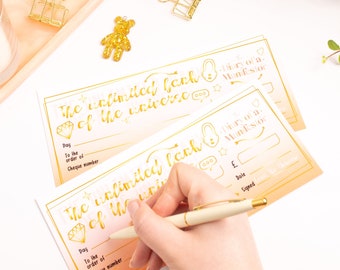 The unlimited bank
of the universe
Diary of a
Pay
To the
order of
Cheque number
The unlimited bank
of the universe
Diary of a
Pay
To the
order of
Cheque number
£
Date
Signed